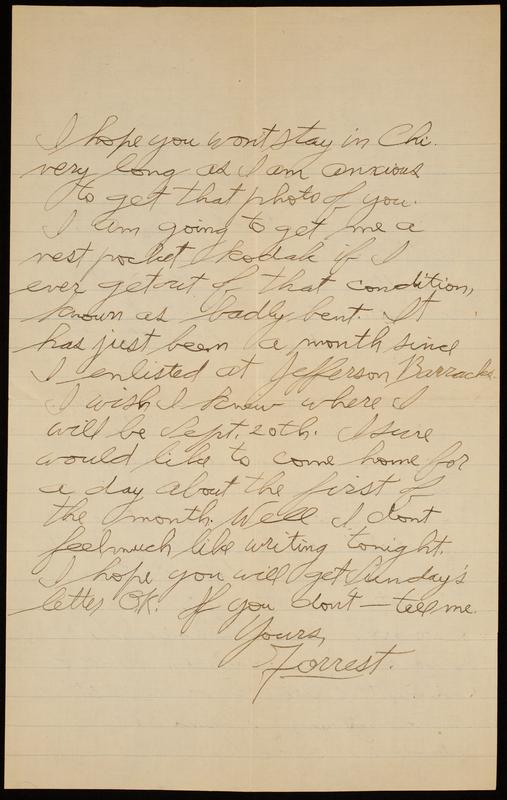 I hope you wont stay in Chi.
very long as I am anxious
to get that photo of you.
I am going to get me a
vest pocket Kodak if I
ever get out of that condition,
known as badly bent. It
has just been a month since
I enlisted at Jefferson Barracks.
I wish I knew where I
will be Sept. 20th. I sure
would like to come home for
a day about the first of
the month. Well I dont
feel much like writing tonight.
I hope you will get Sunday's
letter OK. If you dont — tell me.
Yours,
Forrest.